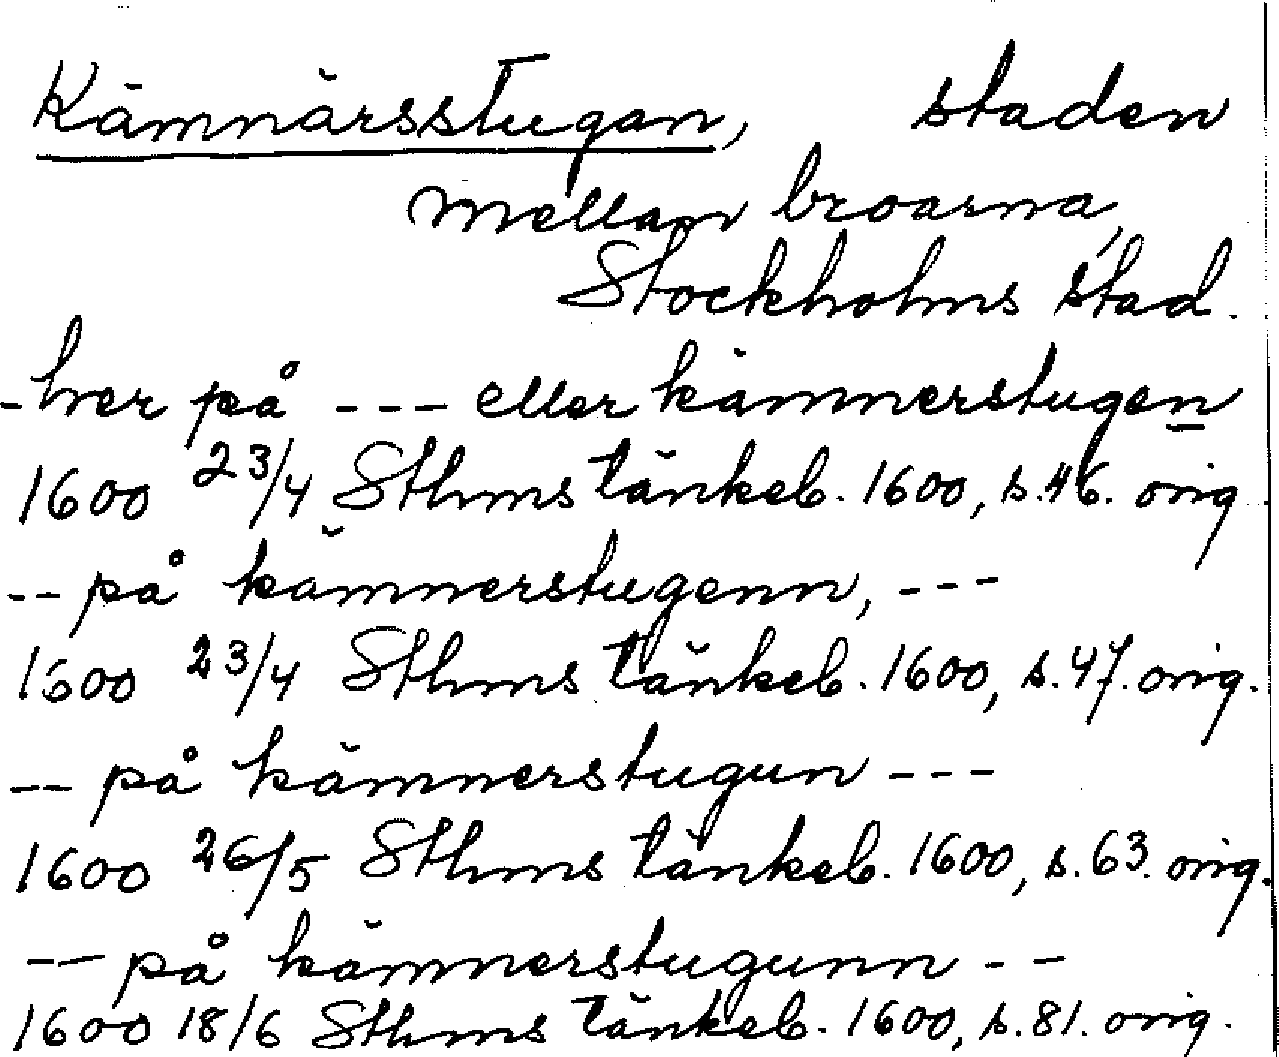 Kämnärsstugan, staden
mellan broarna,
Stockholms stad.
-hver på --- eller kämnerstugen
1600 23/4 Sthms tänkeb. 1600, s.46. orig
-- på kämnerstugenn, ---
1600 23/4 Sthms tänkeb. 1600, s.47. orig.
-- på kämnerstugun ---
1600 26/5 Sthms tänkeb. 1600, s.63. orig.
-- på kämnerstugunn --
1600 18/6 Sthms tänkeb. 1600, s.81. orig.